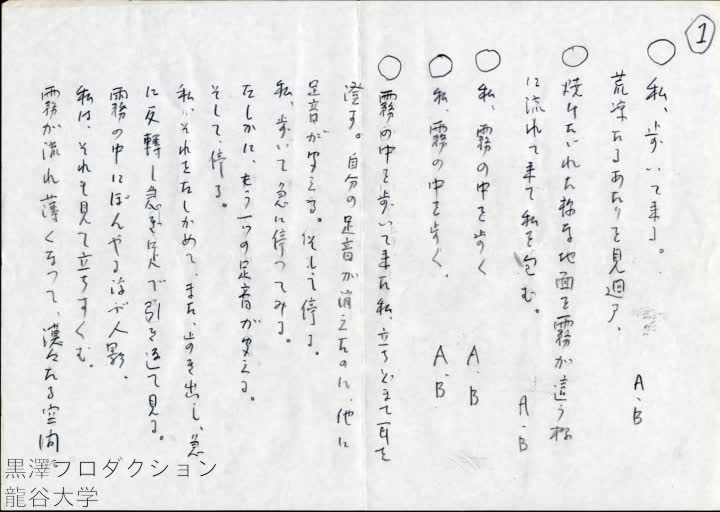 1
○ 私、歩いて来る。
荒凉たるあたりを見廻す。
A、B
○ 焼けたゞれた様な地面を霧が這う様
に流れて来て私を包む。
A、B
○ 私、霧の中を歩く
A、B
○ 私、霧の中を歩く、
A、B
○ 霧の中を歩いて来た私、立ちどまって耳を
澄す。自分の足音が消えたのに、他に
足音が聞える。そして停る。
私、歩いて急に停ってみる。
たしかに、もう一つの足音が聞える。
そして、停る。
私、それをたしかめて、また、歩き出し、急
に反轉し急ぎ足で引き返して見る。
霧の中にぼんやり浮ぶ人影。
私は、それを見て立ちすくむ。
霧が流れ薄くなって、漠々たる空間。
黒澤プロダクション
龍谷大学